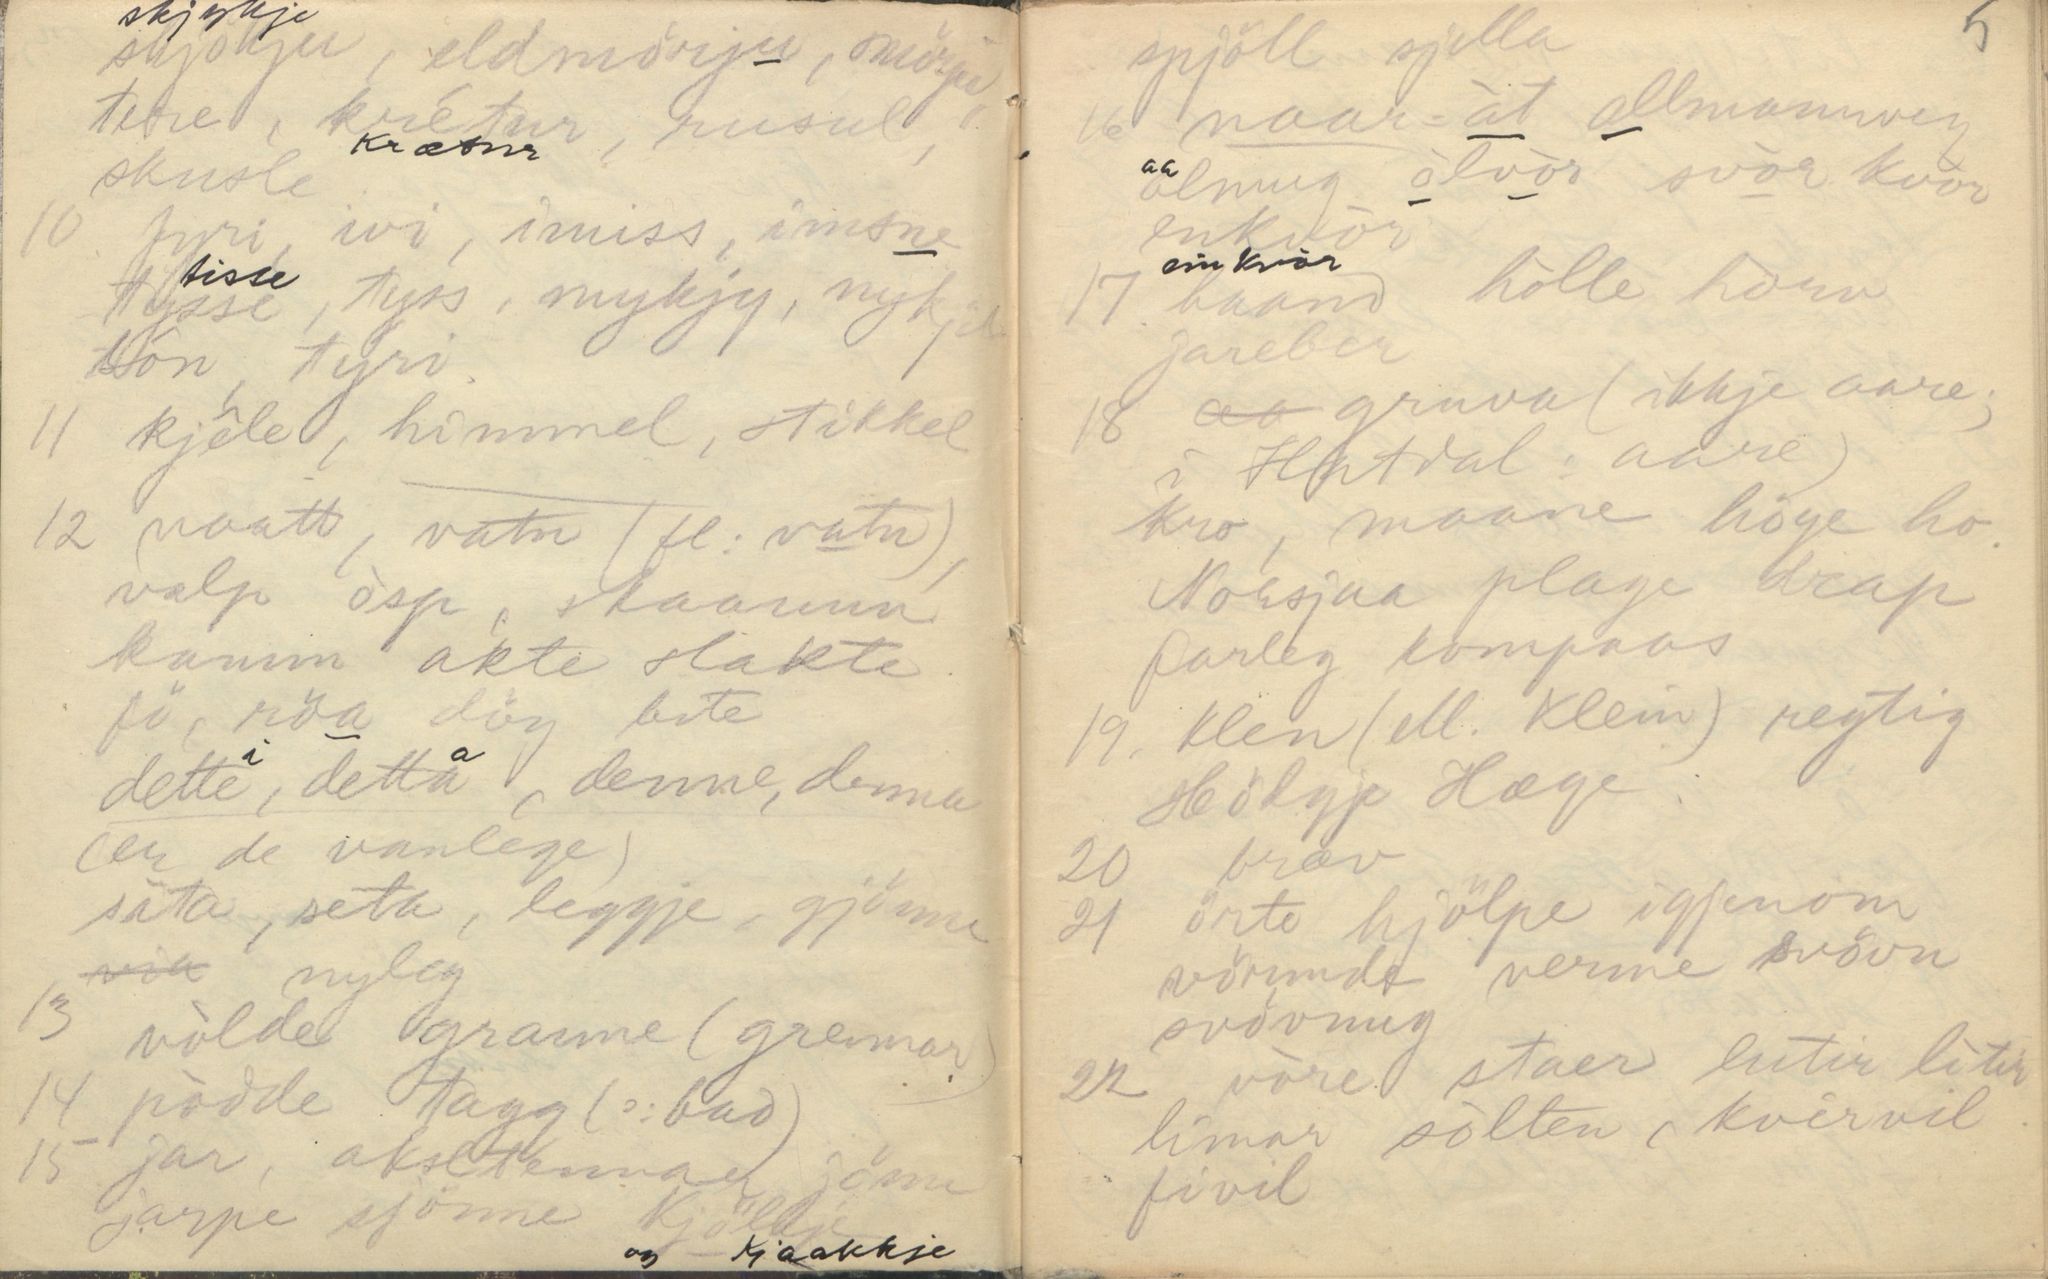 skjykje
skjökju, eldmörju, 
tere, krétur, rusul,
krætur
skusle
10 fyri, ivi, imiss, imsne
tisse
tysse, tyss, mykjy, nykjel
tôn, tyri.
11 kjêle, himmel, stikkel
12 naatt, vatn (fl: vatn),
valp òsp, skaaunn
kamm akte slakte
fö, röa dög bite
i a
dette, detta, denne, denna
(er de vanlege)
sita, seta, leggje, gjönn
via nyleg
13 vòlde granne (grennar)
14 pòdde tagg (ɔ: bad)
15 jar, akslennar jönn
jarpe sjönne kjölkje
og kjaakkje
5
spjöll sjella
16 naar-ät allmannveg
aa
ålmug òlvòr svòr kvòr
enkvòr
einkvòr
17 baand hòlle hòrn
jareber
18 aa gruva (ikkje aare;
i Hatdal: aare)
kro, maane höge ho.
Norsjaa plage drap
farleg kompaas
19. klen (ell. klein) regtig
Hökgje Hæge.
20 brav
21 örte hjölpe igjenom
vörmde verme svövn
svövnug
22 vòre staer lutir litir
limar sòlten, kvèrvil
fivil